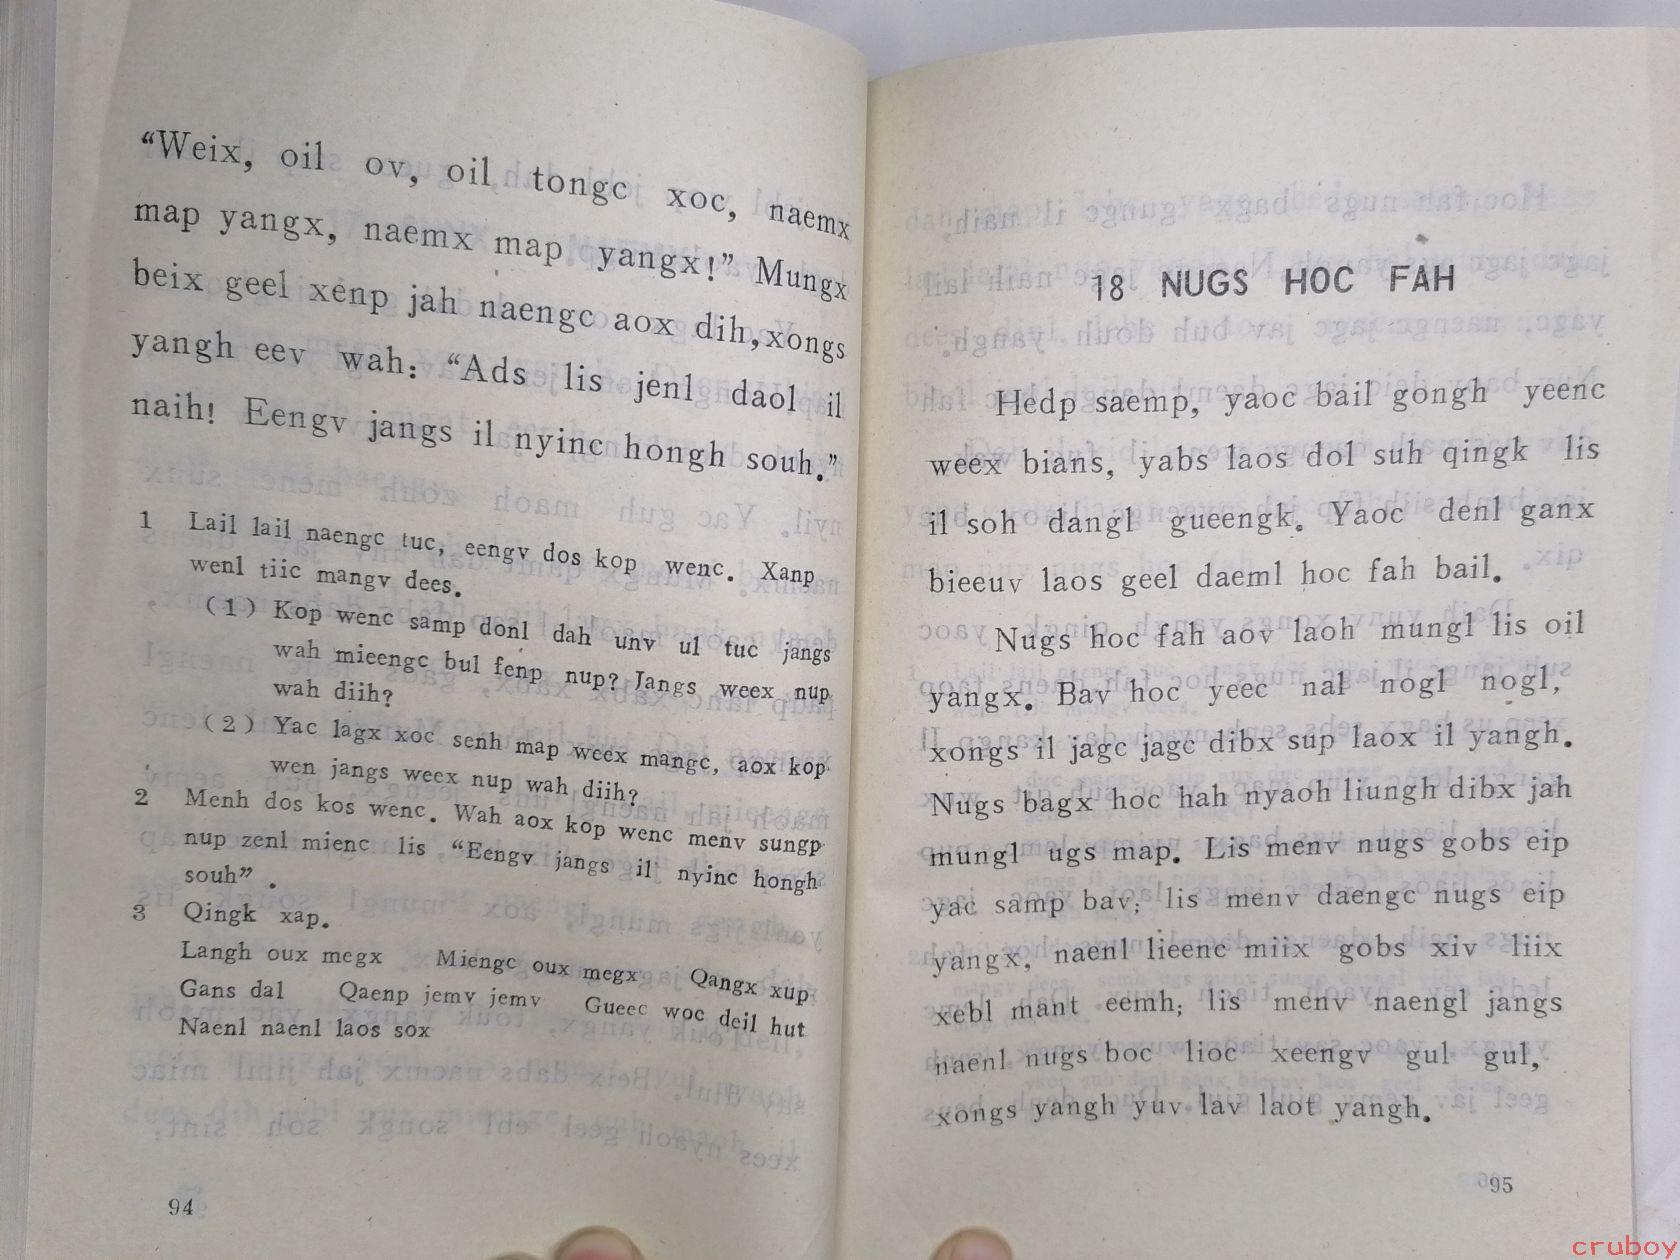 “Weix, oil ov, oil tongc xoc, naemx
map yangx, naemx map yangx!” Mungx
beix geel xenp jah naengc aox dih, xongs
yangh eev wah: “Ads lis jenl daol il
naih! Eengv jangs il nyinc hongh souh.”
1 Lail lail naengc tuc, eengv dos kop wenc. Xanp
wenl tiic mangv dees.
(1) Kop wenc samp donl dah unv ul tuc jangs
wah mieengc bul fenp nup? Jangs weex nup
wah diih?
(2) Yac lagx xoc senh map weex mangc, aox kop
wen jangs weex nup wah diih?
2 Menh dos kos wenc. Wah aox kop wenc menv sungp
nup zenl mienc lis “Eengv jangs il nyinc hongh
souh”.
3 Qingk xap.
Langh oux megx Miengc oux megx Qangx xup
Gans dal Qaenp jemv jemv Gueec woc deil hut
Naenl naenl laos sox
94
18 NUGS HOC FAH
Hedp saemp, yaoc bail gongh yeenc
weex bians, yabs laos dol suh qingk lis
il soh dangl gueengk. Yaoc denl ganx
bieeuv laos geel daeml hoc fah bail.
Nugs hoc fah aov laoh mungl lis oil
yangx. Bav hoc yeec nal nogl nogl,
xongs il jagc jagc dibx sup laox il yangh.
Nugs bagx hoc hah nyaoh liungh dibx jah
mungl ugs map. Lis menv nugs gobs eip
yac samp bav; lis menv daengc nugs eip
yangx, naenl lieenc miix gobs xiv liix
xebl mant eemh; lis menv naengl jangs
naenl nugs boc lioc xeengv gul gul,
xongs yangh yuv lav laot yangh.
95
cruboy